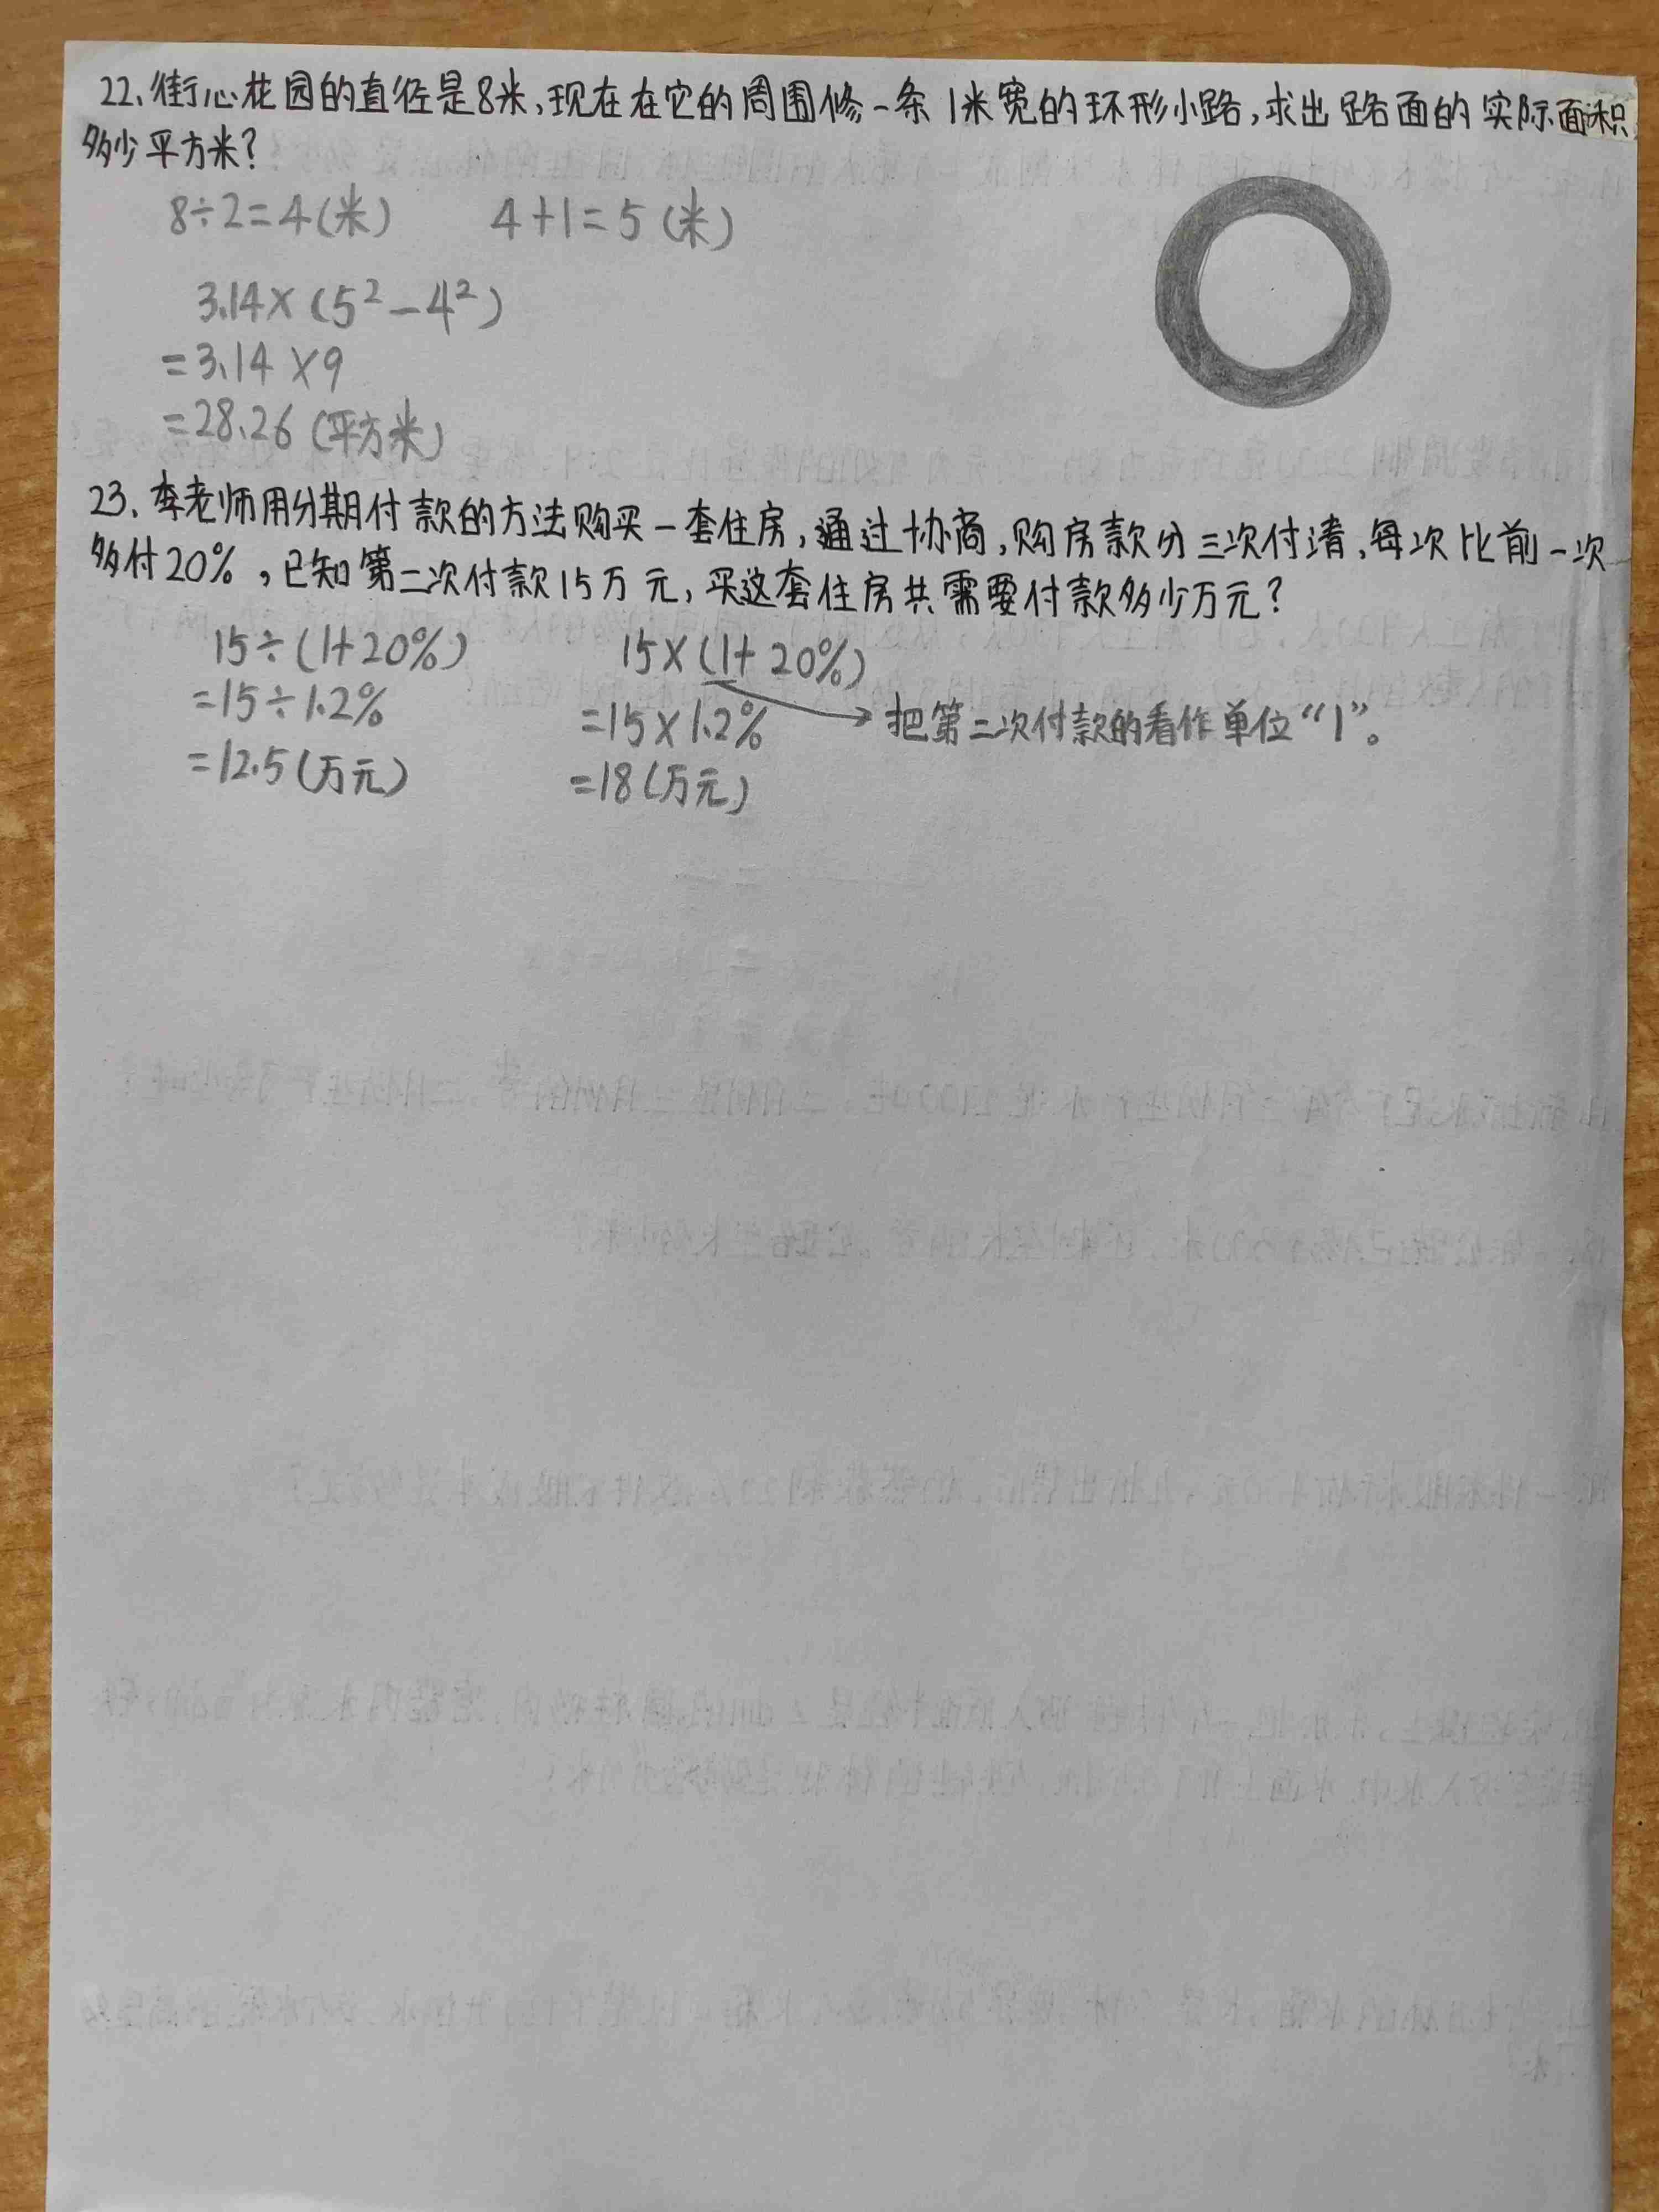 22、街心花园的直径是8米,现在在它的周围修一条1米宽的环形小路,求出路面的实际面积
多少平方米?
8÷2=4(米) 4+1=5(米)
3.14×(5²-4²)
=3.14×9
=28.26(平方米)
23、李老师用分期付款的方法购买一套住房,通过协商,购房款分三次付清,每次比前一次
多付20%,已知第二次付款15万元,买这套住房共需要付款多少万元?
15÷(1+20%) 15×(1+20%)
=15÷1.2% =15×1.2% →把第二次付款的看作单位“1”。
=12.5(万元) =18(万元)